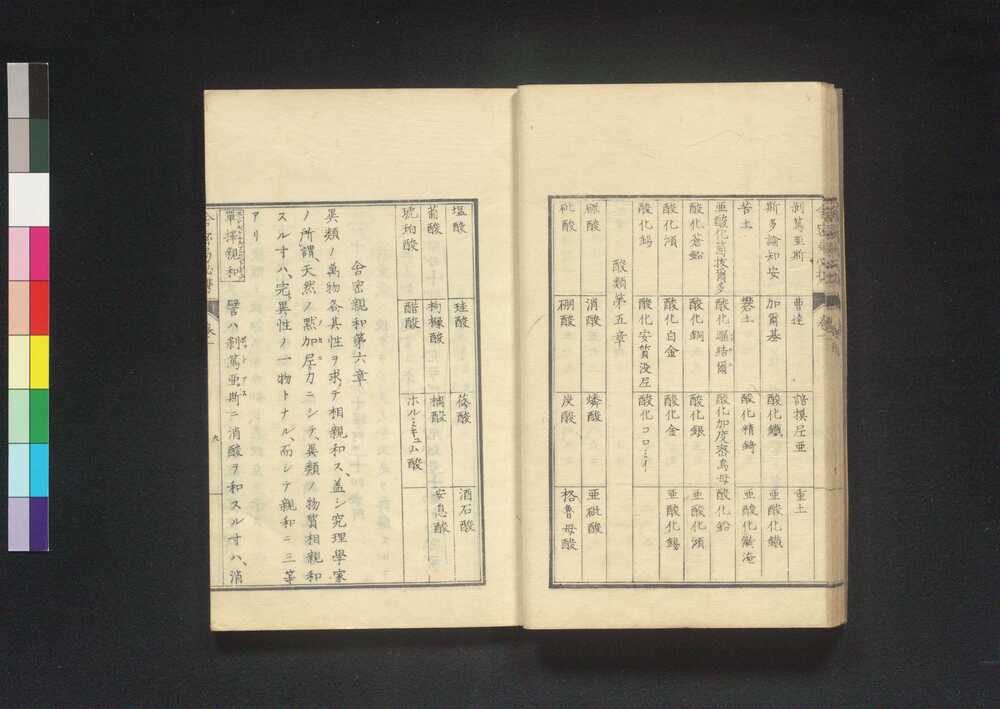 剥篤亜斯 曹達 諳摸尼亜 重土
斯多論知安 加爾基 酸化鐵 亜酸化鐵
苦土 礬土 酸化精錡 亜酸化
亜酸化 酸化 酸化加度密烏母 酸化鉛
酸化蒼鉛 酸化銅 酸化銀 亜酸化澒
酸化澒 酸化白金 酸化金 亜酸化錫
酸化錫 酸化安質没尼 酸化コロミイ
酸類第五章
硫酸 消酸 燐酸 亜砒酸
砒酸 硼酸 炭酸 格魯母酸
塩酸 硅酸 蓚酸 酒石酸
葡酸 枸櫞酸 安息酸
琥珀酸 醋酸 ホルミキュム酸
合密親和第六章
異類ノ萬物各其性ヲ求テ相親和ス、蓋シ究理學家
ノ所謂天然ノ黙加尼カニシテ、異類ノ物質相親和
スルヰハ、完異性ノ一物トナル、而シテ親和ニ三等
アリ
單擇親和 譬ハ剥篤亜斯ニ消酸ヲ和スルヰハ、消